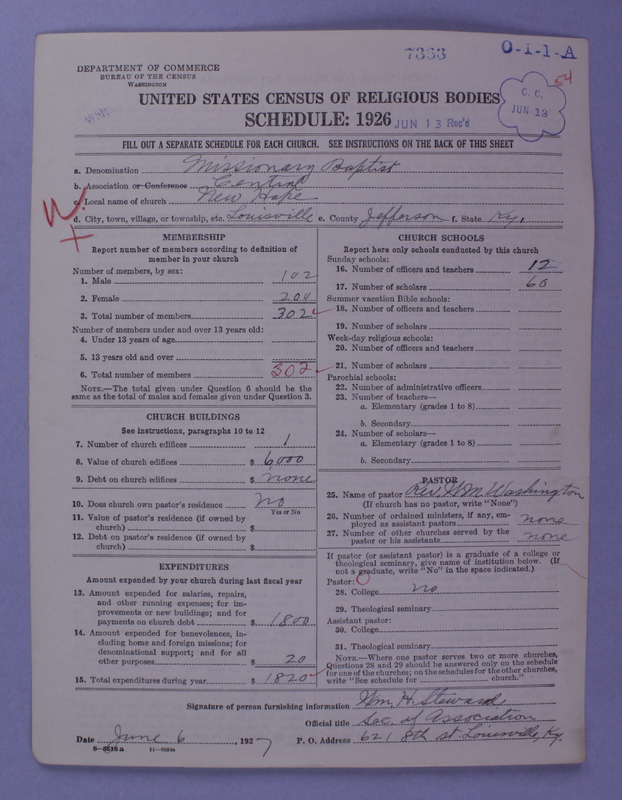 7363
O-1-1-A
54
DEPARTMENT OF COMMERCE
BUREAU OF THE CENSUS
WASHINGTON
C. C.
JUN 13
UNITED STATES CENSUS OF RELIGIOUS BODIES
SCHEDULE: 1926
JUN 13 Rec'd
FILL OUT A SEPARATE SCHEDULE FOR EACH CHURCH. SEE INSTRUCTIONS ON THE BACK OF THIS SHEET
a. Denomination Missionary Baptist
b. Association or Conference Central
c. Local name of church New Hope
d. City, town, village, or township, etc. Louisville e. County Jefferson f. State Ky.
W.
MEMBERSHIP
Report number of members according to definition of
member in your church
Number of members, by sex:
1. Male 102
2. Female 200
3. Total number of members 302
Number of members under and over 13 years old:
4. Under 13 years of age
5. 13 years old and over
6. Total number of members 302
NOTE.—The total given under Question 6 should be the
same as the total of males and females given under Question 3.
CHURCH BUILDINGS
See instructions, paragraphs 10 to 12
7. Number of church edifices 1
8. Value of church edifices $ 6000
9. Debt on church edifices $ none
10. Does church own pastor's residence no
Yes or No
11. Value of pastor's residence (if owned by
church) $
12. Debt on pastor's residence (if owned by
church) $
EXPENDITURES
Amount expended by your church during last fiscal year
13. Amount expended for salaries, repairs,
and other running expenses; for im-
provements or new buildings; and for
payments on church debt $ 1800
14. Amount expended for benevolences, in-
cluding home and foreign missions; for
denominational support; and for all
other purposes $ 20
15. Total expenditures during year $ 1820
CHURCH SCHOOLS
Report here only schools conducted by this church
Sunday schools:
16. Number of officers and teachers 12
17. Number of scholars 60
Summer vacation Bible schools:
18. Number of officers and teachers
19. Number of scholars
Week-day religious schools:
20. Number of officers and teachers
21. Number of scholars
Parochial schools:
22. Number of administrative officers
23. Number of teachers—
a. Elementary (grades 1 to 8)
b. Secondary
24. Number of scholars—
a. Elementary (grades 1 to 8)
b. Secondary
PASTOR
25. Name of pastor Rev. Wm Washington
(If church has no pastor, write "None")
26. Number of ordained ministers, if any, em-
ployed as assistant pastors none
27. Number of other churches served by the
pastor or his assistants none
If pastor (or assistant pastor) is a graduate of a college or
theological seminary, give name of institution below. (If
not a graduate, write "No" in the space indicated.)
Pastor:
28. College no
29. Theological seminary
Assistant pastor:
30. College
31. Theological seminary
NOTE.—Where one pastor serves two or more churches,
Questions 28 and 29 should be answered only on the schedule
for one of the churches; on the schedules for the other churches,
write "See schedule for church."
Signature of person furnishing information Wm. H. Steward
Official title Sec. of Association
Date June 6, 1927 P. O. Address 621 8th st. Louisville, Ky.
8-5518a